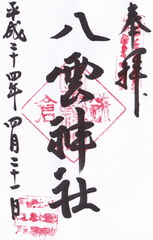 奉拝
八雲神社
平成二十四年 四月二十一日